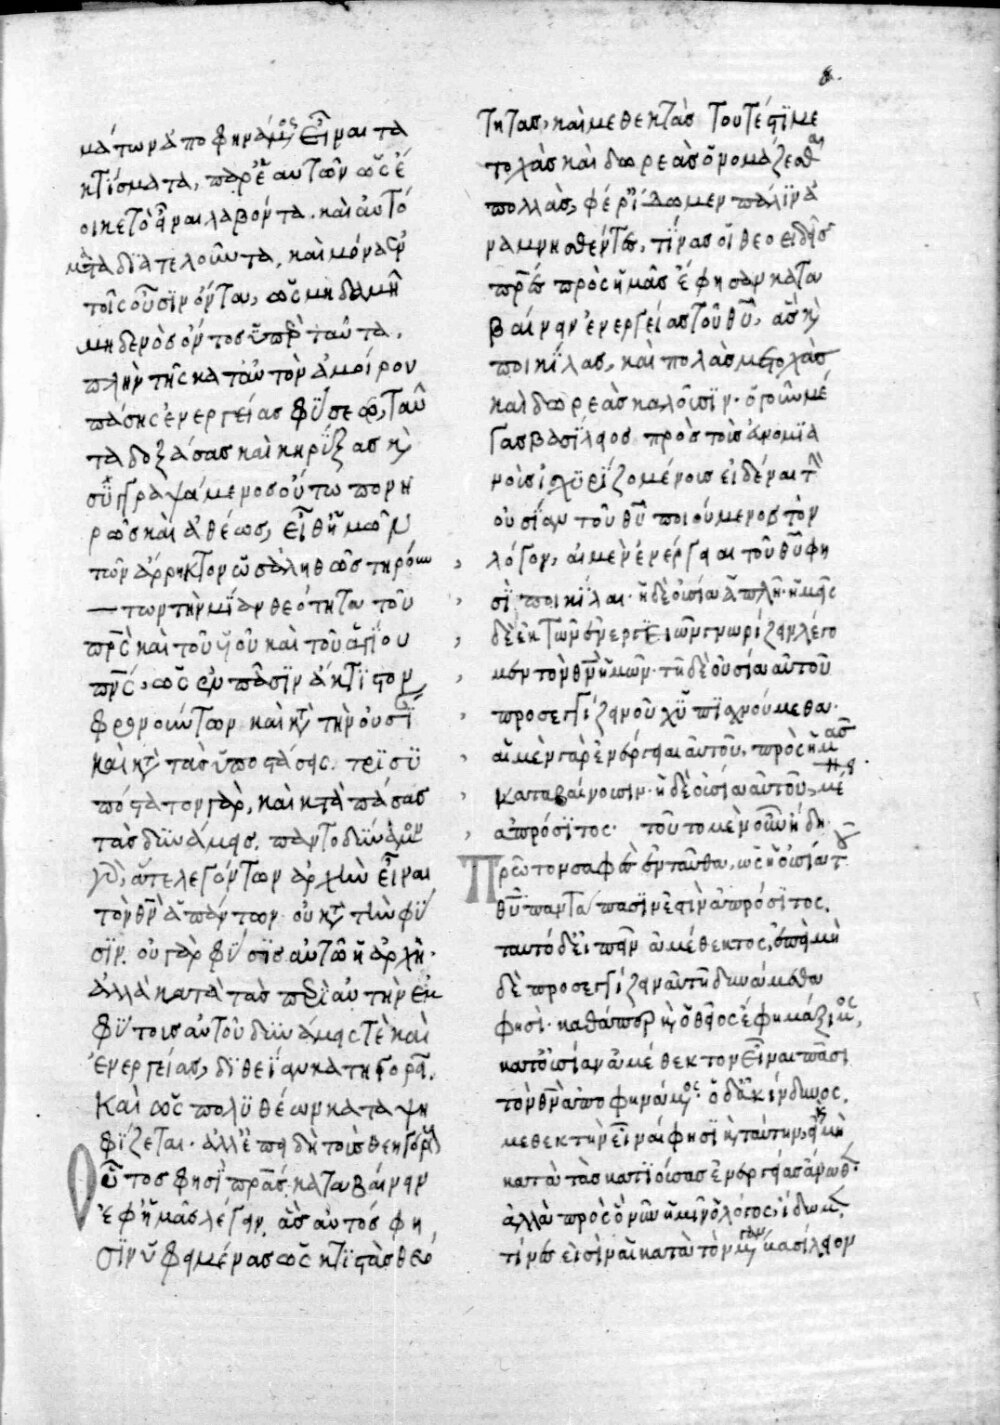 μάτων ἀποφηνάμενος εἶναι τὰ
κτίσματα, παρ' ἑαυτῶν ὡς ἐ
οικε τὸ εἶναι λαβόντα. καὶ αὐτό
ματα διατελοῦντα, καὶ μόνα σὺ
τοῖς οὖσιν ὄντα, ὡς μηδαμῆ
μηδενὸς ὄντος ὑπὲρ ταῦτα.
πλὴν τῆς κατ' αὐτὸν ἀμοίρου
πάσης ἐνεργείας φύσεως, ταῦ
τα δοξάσας καὶ κηρύξας καὶ
συγγραψάμενος οὕτω πονη
ρῶς καὶ ἀθέως, εἶθ' ἡμῶν
τῶν ἀρρήκτον ὡς ἀληθῶς τηρούν
των τὴν μίαν θεότητα τοῦ
πρς καὶ τοῦ υἱοῦ καὶ τοῦ ἁγίου
πνς, ὡς ἐν πᾶσιν ἄκτιστον
φρονούντων καὶ κατὰ τὴν οὐσί
καὶ κατὰ τὰς ὑποστάσεις. τρισυ
πόστατον γὰρ, καὶ κατὰ πάσας
τὰς δυνάμεις. παντοδύναμον
γὰρ, ἅτε λεγόντων ἀρχὴν εἶναι
τὸν θν ἁπάντων. οὐ κατὰ τὴν φύ
σιν. οὐ γὰρ φύσις αὐτῶ ἡ ἀρχή.
ἀλλὰ κατὰ τὰς περὶ αὐτὴν ἐμ
φύτοις αὐτοῦ δυνάμεις τὲ καὶ
ἐνεργείας, διθεΐαν κατηγορεῖ.
καὶ ὡς πολυθέων καταψη
φίζεται. ἀλλ' ἐπεὶ δὴ τοῖς θεηγόροις
οὗτος φησὶ πρᾶσ. καταβαίνειν
ἐφ' ἡμᾶς λέγειν. ἃς αὐτός φη
σιν ὑφειμένας ὡς κτιστὰς θεό
τητας, καὶ μεθεκτὰς τουτέστι με
τοχὰς καὶ δωρεὰς ὀνομάζεσθαι
πολλὰς, φέρε ἴδωμεν πάλιν ἀ
ναμνησθέντες, τίνας οἱ θεοειδεῖς
πρες πρὸς ἡμᾶς ἔφησαν κατα
βαίνειν ἐνεργείας τοῦ θυ, ἃς καὶ
ποικίλας, καὶ πολλὰς μετοχὰς
καὶ δωρεὰς καλοῦσιν. ὁ γοῦν μέ
γας βασίλειος πρὸς τοὺς ἀνομία
νοῖς ἰσχυρίζομένοις εἰδέναι τὴν
οὐσίαν τοῦ θυ ποιούμενος τὸν
λόγον, αἱ μὲν ἐνέργειαι τοῦ θυ φη
σὶ ποικίλαι. ἡ δὲ οὐσία ἁπλῆ. ἡμεῖς
δὲ ἐκ τῶν ἐνεργειῶν γνωρίζειν λέγο
μεν τὸν θν ἡμῶν. τῆ δὲ οὐσία αὐτοῦ
προσεγγίζειν οὐχ ὑπισχνούμεθα.
αἱ μὲν γὰρ ἐνέργειαι αὐτοῦ, πρὸς ἡμᾶς
καταβαίνουσιν. ἡ δὲ οὐσία αὐτοῦ, μέ
νει
ἀπρόσιτος. τοῦτο μὲν οὖν ἤδη
πρῶτον σαφῶς ἐνταῦθα, ὡς ἡ οὐσία τοῦ
θυ πάντα πᾶσιν ἐστὶν ἀπρόσιτος.
ταυτὸ δ' εἰπεῖν ἀμέθεκτος, ἐπεὶ μὴ
δὲ προσεγγίζειν αὐτῆ δυνάμεθα
φησί. καθάπερ καὶ ὁ θεῖος ἔφη μάξιμος,
κατ' οὐσίαν ἀμέθεκτον εἶναι πᾶσι
τὸν θν ἀποφηνάμενος. ὁ δ' ἀκίνδυνος,
μεθεκτὴν εἶναι φησὶ καὶ ταύτην, εἰ μὴ
κατὰ τὰς κατιούσας ἐνεργείας ἄνωθεν.
ἀλλὰ πρὸς ὃ νῦν ἡμῖν ὁ λόγος, ἴδωμεν,
τίνες εἰσὶν αἱ κατὰ τὸν μέγαν βασίλειον